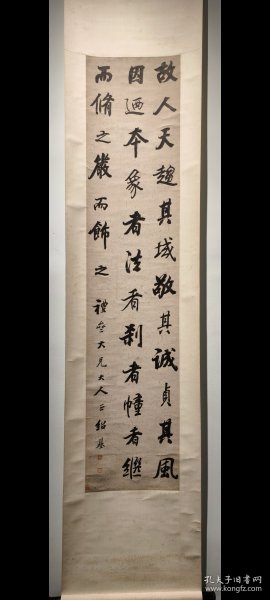 故人天趣其域敬其诚贞其風
因迺本象者法者刹者幢者繼
而脩之嚴而飾之
大兄大人正
孔夫子旧书网
www.kongfz.com